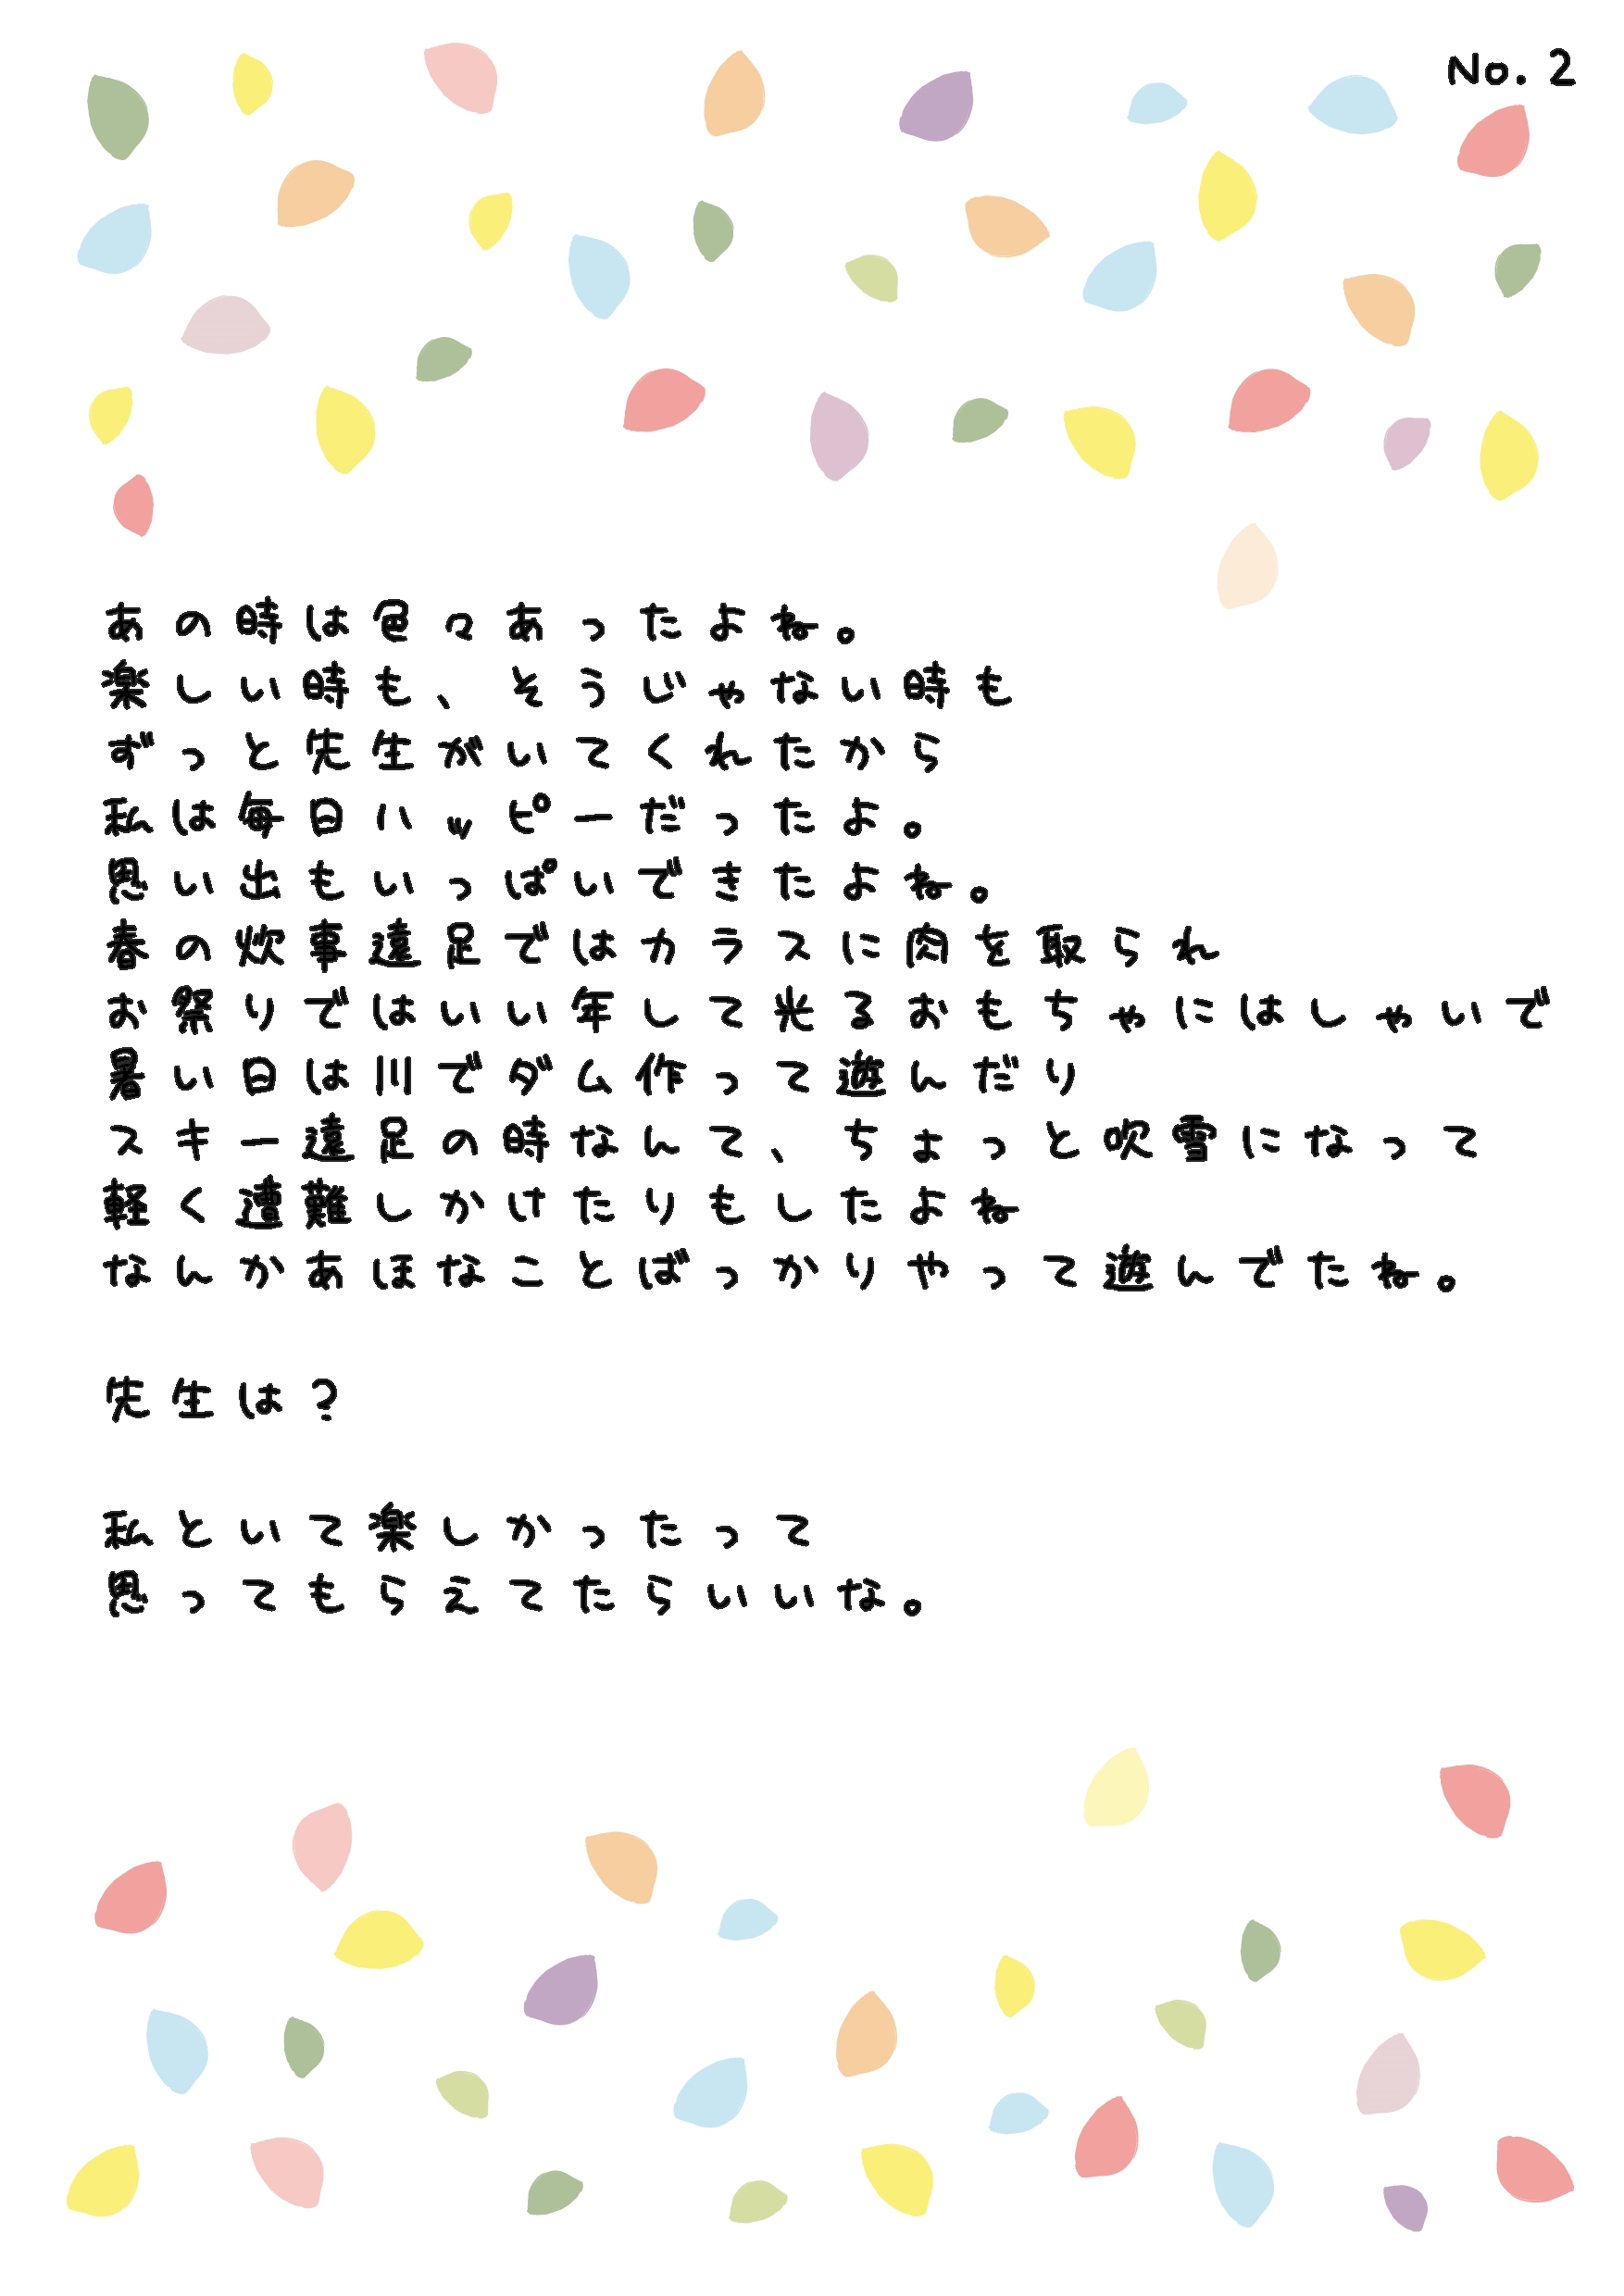 No. 2
あの時は色々あったよね。
楽しい時も、そうじゃない時も
ずっと先生がいてくれたから
私は毎日ハッピーだったよ。
思い出もいっぱいできたよね。
春の炊事遠足ではカラスに肉を取られ
お祭りではいい年して光るおもちゃにはしゃいで
暑い日は川でダム作って遊んだり
スキー遠足の時なんて、ちょっと吹雪になって
軽く遭難しかけたりもしたよね
なんかあほなことばっかりやって遊んでたね。
先生は?
私といて楽しかったって
思ってもらえてたらいいな。